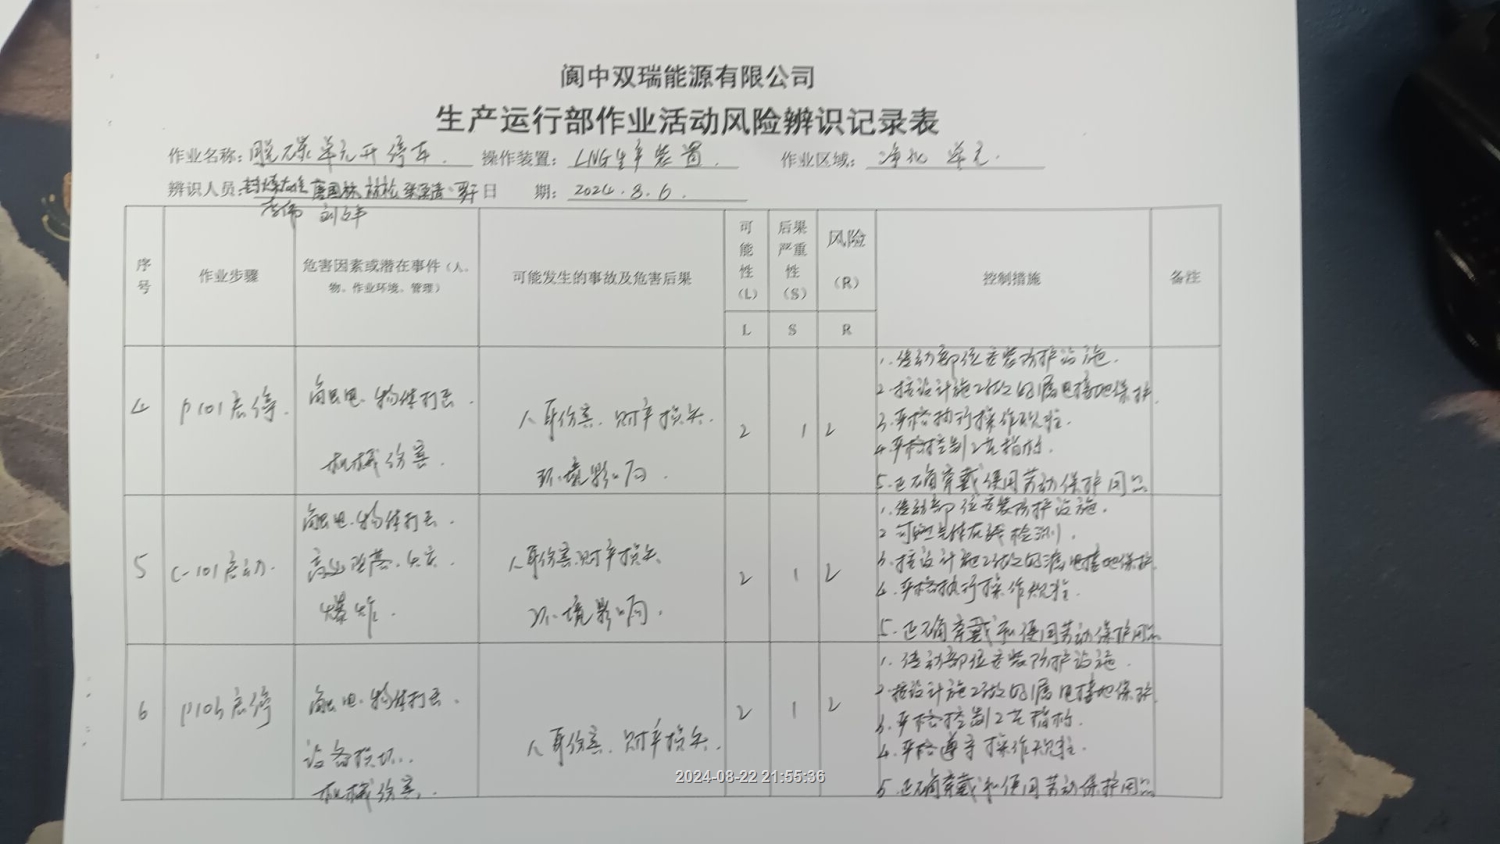 阆中双瑞能源有限公司
生产运行部作业活动风险辨识记录表
作业名称：脱碳单元开停车. 操作装置：LNG生产装置 作业区域：净化单元.
辨识人员： 日 期：2024.8.6.
序号 作业步骤 危害因素或潜在事件（人、物、作业环境、管理） 可能发生的事故及危害后果 可能性（L） 后果严重性（S） 风险（R） 控制措施 备注
L S R
4 P101启停. 触电、物体打击.
机械伤害.
人身伤害、财产损失.
环境影响.
2 1 2
1.传动部位安装防护设施.
2.按设计施工的漏电接地保护.
3.严格执行操作规程.
4.严格控制工艺指标.
5.正确穿戴使用劳动保护用品
5 C-101启动. 触电、物体打击.
高处坠落、火灾.
爆炸.
人身伤害、财产损失
环境影响.
2 1 2
1.传动部位安装防护设施.
2 可燃气体在线检测.
3.按设计施工的漏电接地保护.
4.严格执行操作规程.
5.正确穿戴和使用劳动保护用品
6 启停 触电、物体打击.
设备损坏.
机械伤害.
人身伤害、财产损失.
2 1 2
1.传动部位安装防护设施.
2.按设计施工的漏电接地保护.
3.严格控制工艺指标.
4.严格遵守操作规程.
5.正确穿戴和使用劳动保护用品
2024-08-22 21:55:36